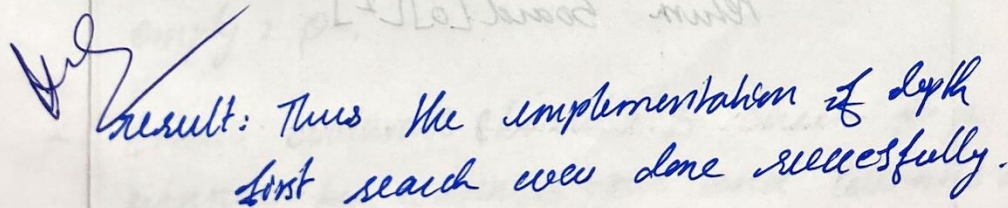 result: Thus the implementation of depth
first search was done successfully.
return board[0][2]